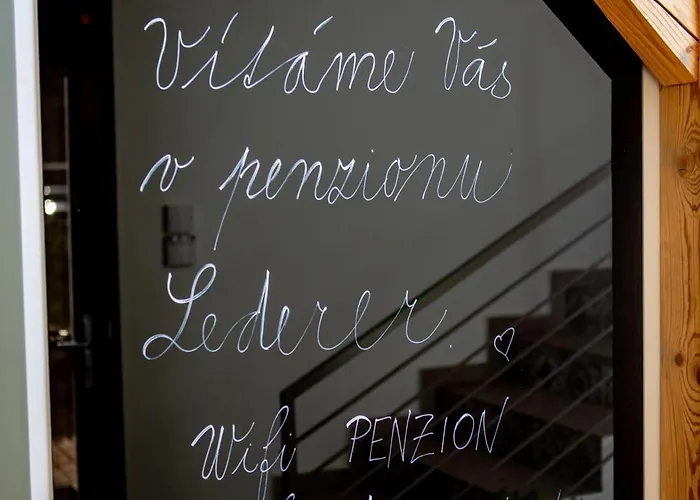 Vítáme Vás
v penzionu
Lederer. ♡
Wifi PENZION